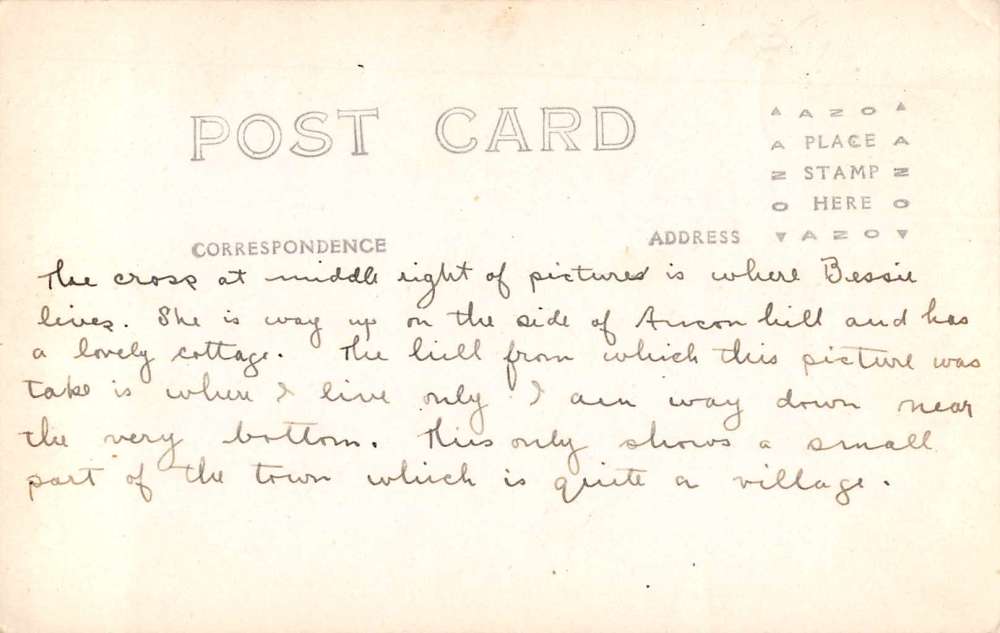 POST CARD
▲ A Z O ▲
A PLACE A
Z STAMP Z
O HERE O
▼ A Z O ▼
CORRESPONDENCE
ADDRESS
The cross at middle right of pictures is where Bessie
lives. She is way up on the side of Ancon hill and has
a lovely cottage. The hill from which this picture was
take is where I live only I am way down near
the very bottom. This only shows a small
part of the town which is quite a village.